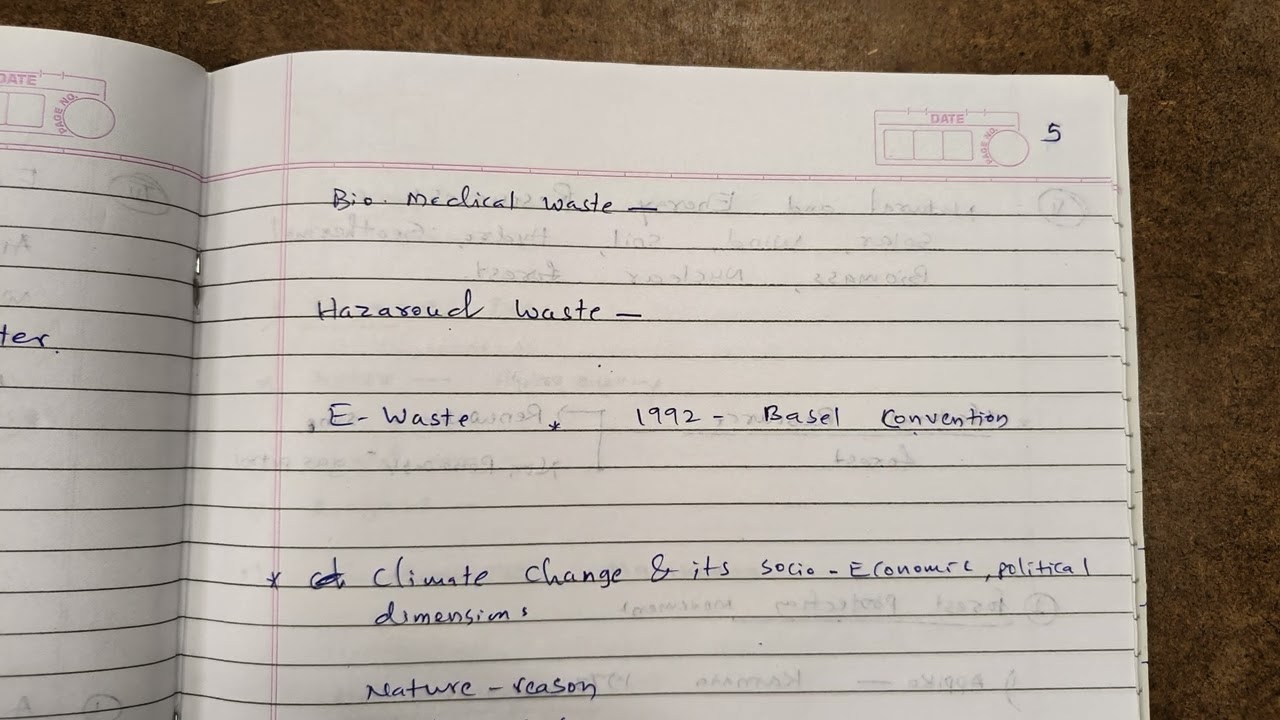 DATE
PAGE NO.
ter.
DATE
PAGE NO.
5
Bio. Medical waste —
Hazaroud waste —
E- Waste * 1992 - Basel Convention
* Climate change & its socio - Economic, political
dimensions
Nature - reason